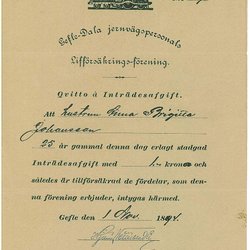 Gefle-Dala jernvägspersonals
Lifförsäkrings-förening.
Qvitto å Inträdesafgift.
Att hustrun Anna Brigitta
Johansson
25 år gammal denna dag erlagt stadgad
Inträdesafgift med 1 kronor och
således är tillförsäkrad de fördelar, som den-
na förening erbjuder, intygas härmed.
Gefle den 1 Nov. 1894.